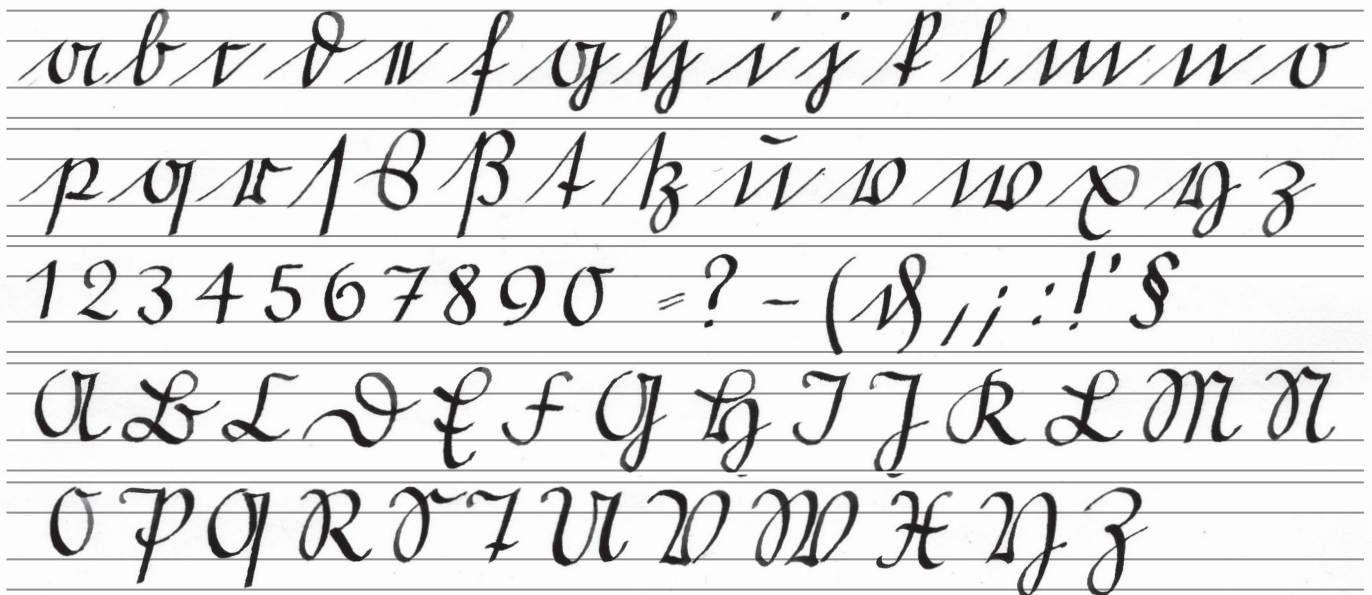 a b c d e f g h i j k l m n o
p q r ſ s ß t tz ŭ v w x y z
1 2 3 4 5 6 7 8 9 0 = ? – ( , ; : ! ' §
A B C D E F G H I J K L M N
O P Q R S T U V W X Y Z